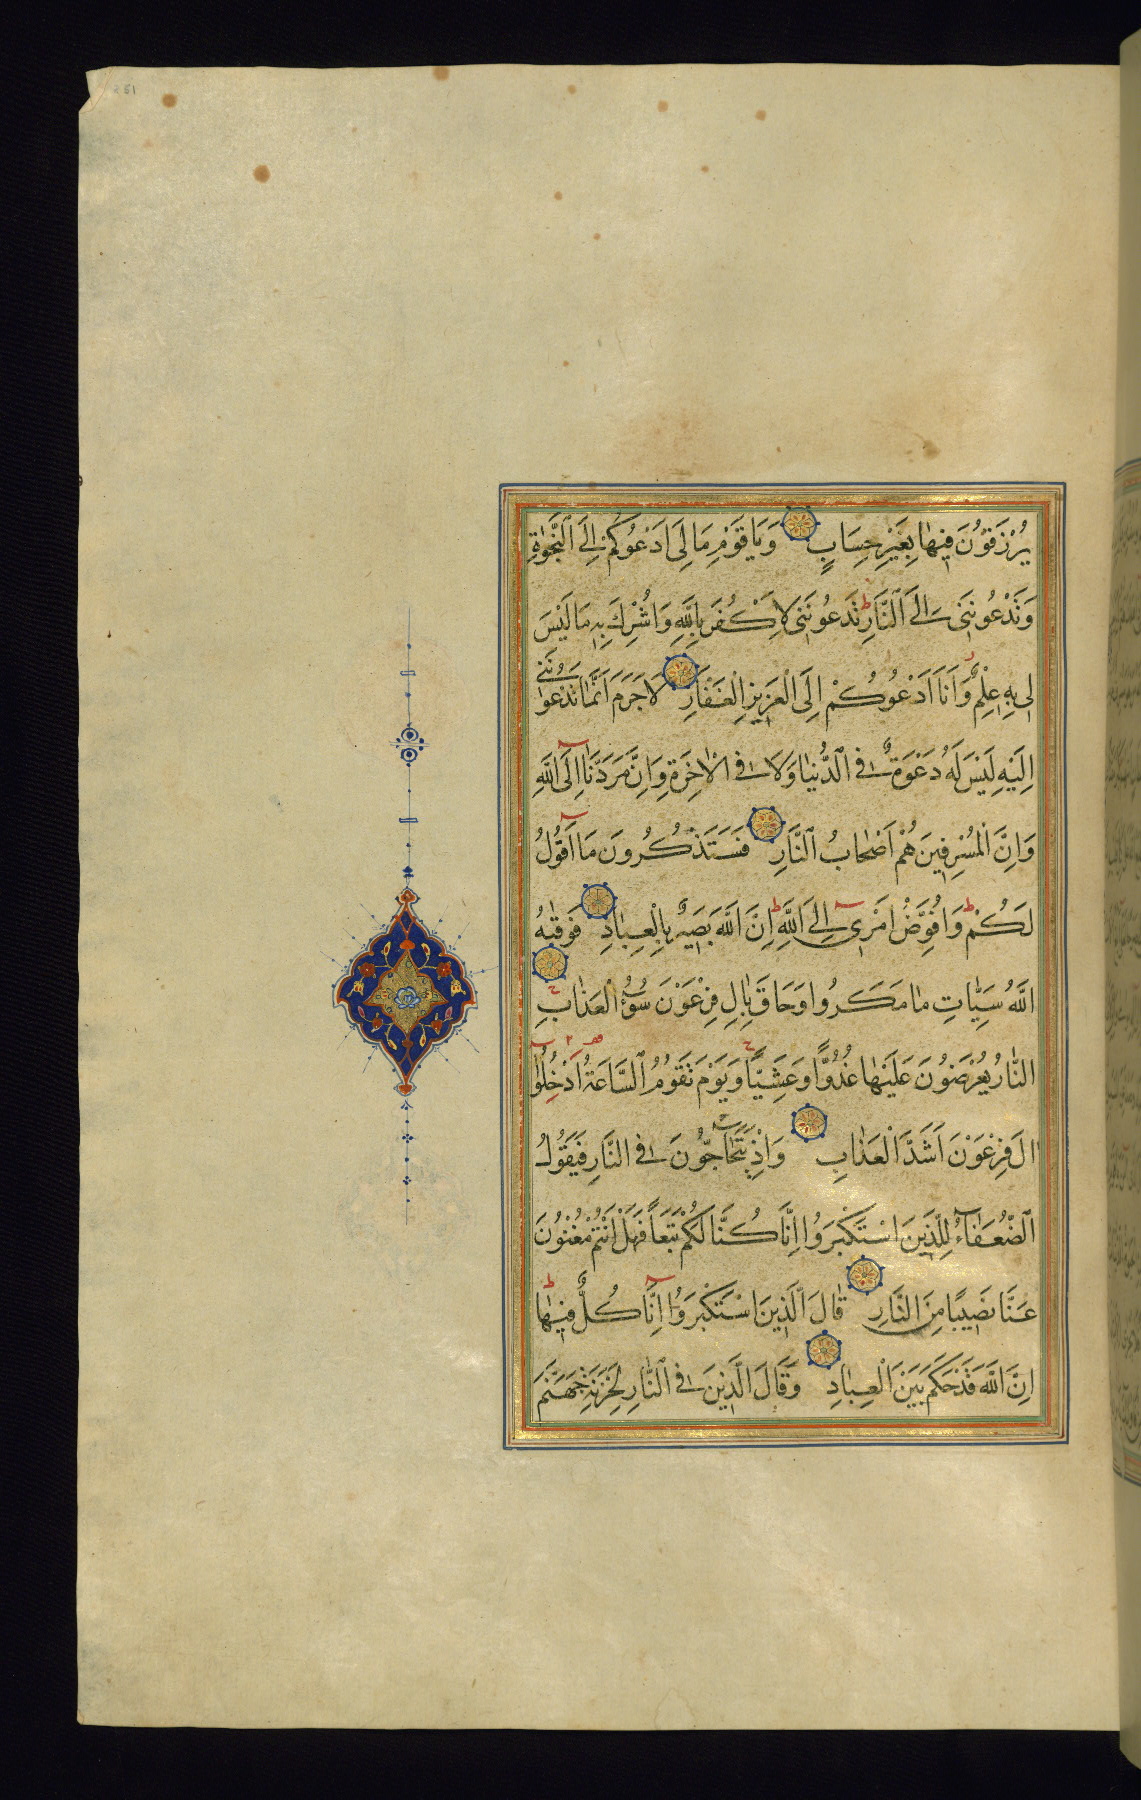 251
يُرْزَقُونَ فِيهَا بِغَيْرِ حِسَابٍ وَيَا قَوْمِ مَا لِي اَدْعُوكُمْ اِلَى النَّجٰوةِ
وَتَدْعُونَنِي اِلَى النَّارِ تَدْعُونَنِي لِاَكْفُرَ بِاللّٰهِ وَاُشْرِكَ بِهِ مَا لَيْسَ
لِي بِهِ عِلْمٌ وَاَنَا اَدْعُوكُمْ اِلَى الْعَزِيزِ الْغَفَّارِ لَا جَرَمَ اَنَّمَا تَدْعُونَنِي
اِلَيْهِ لَيْسَ لَهُ دَعْوَةٌ فِي الدُّنْيَا وَلَا فِي الْاٰخِرَةِ وَاَنَّ مَرَدَّنَا اِلَى اللّٰهِ
وَاَنَّ الْمُسْرِفِينَ هُمْ اَصْحَابُ النَّارِ فَسَتَذْكُرُونَ مَا اَقُولُ
لَكُمْ وَاُفَوِّضُ اَمْرِي اِلَى اللّٰهِ اِنَّ اللّٰهَ بَصِيرٌ بِالْعِبَادِ فَوَقٰيهُ
اللّٰهُ سَيِّاٰتِ مَا مَكَرُوا وَحَاقَ بِاٰلِ فِرْعَوْنَ سُوءُ الْعَذَابِ
النَّارُ يُعْرَضُونَ عَلَيْهَا غُدُوًّا وَعَشِيًّا وَيَوْمَ تَقُومُ السَّاعَةُ اَدْخِلُوا
اٰلَ فِرْعَوْنَ اَشَدَّ الْعَذَابِ وَاِذْ يَتَحَاجُّونَ فِي النَّارِ فَيَقُولُ
الضُّعَفَاءُ لِلَّذِينَ اسْتَكْبَرُوا اِنَّا كُنَّا لَكُمْ تَبَعًا فَهَلْ اَنْتُمْ مُغْنُونَ
عَنَّا نَصِيبًا مِنَ النَّارِ قَالَ الَّذِينَ اسْتَكْبَرُوا اِنَّا كُلٌّ فِيهَا
اِنَّ اللّٰهَ قَدْ حَكَمَ بَيْنَ الْعِبَادِ وَقَالَ الَّذِينَ فِي النَّارِ لِخَزَنَةِ جَهَنَّمَ